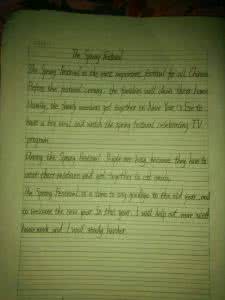 The Spring Festival
The Spring Festival is the most important festival for all Chinese.
Before the festival coming, the families will clean their homes.
Usually, the family members get together on New Year's Eve to
have a big meal and watch the spring festival celebrating TV
program.
During the Spring Festival, People are busy, because they have to
wear their and get together to eat
The Spring Festival is a time to say goodbye to the old year and
to welcome the new year. In this year, I will help out more with
housework and I will study harder.